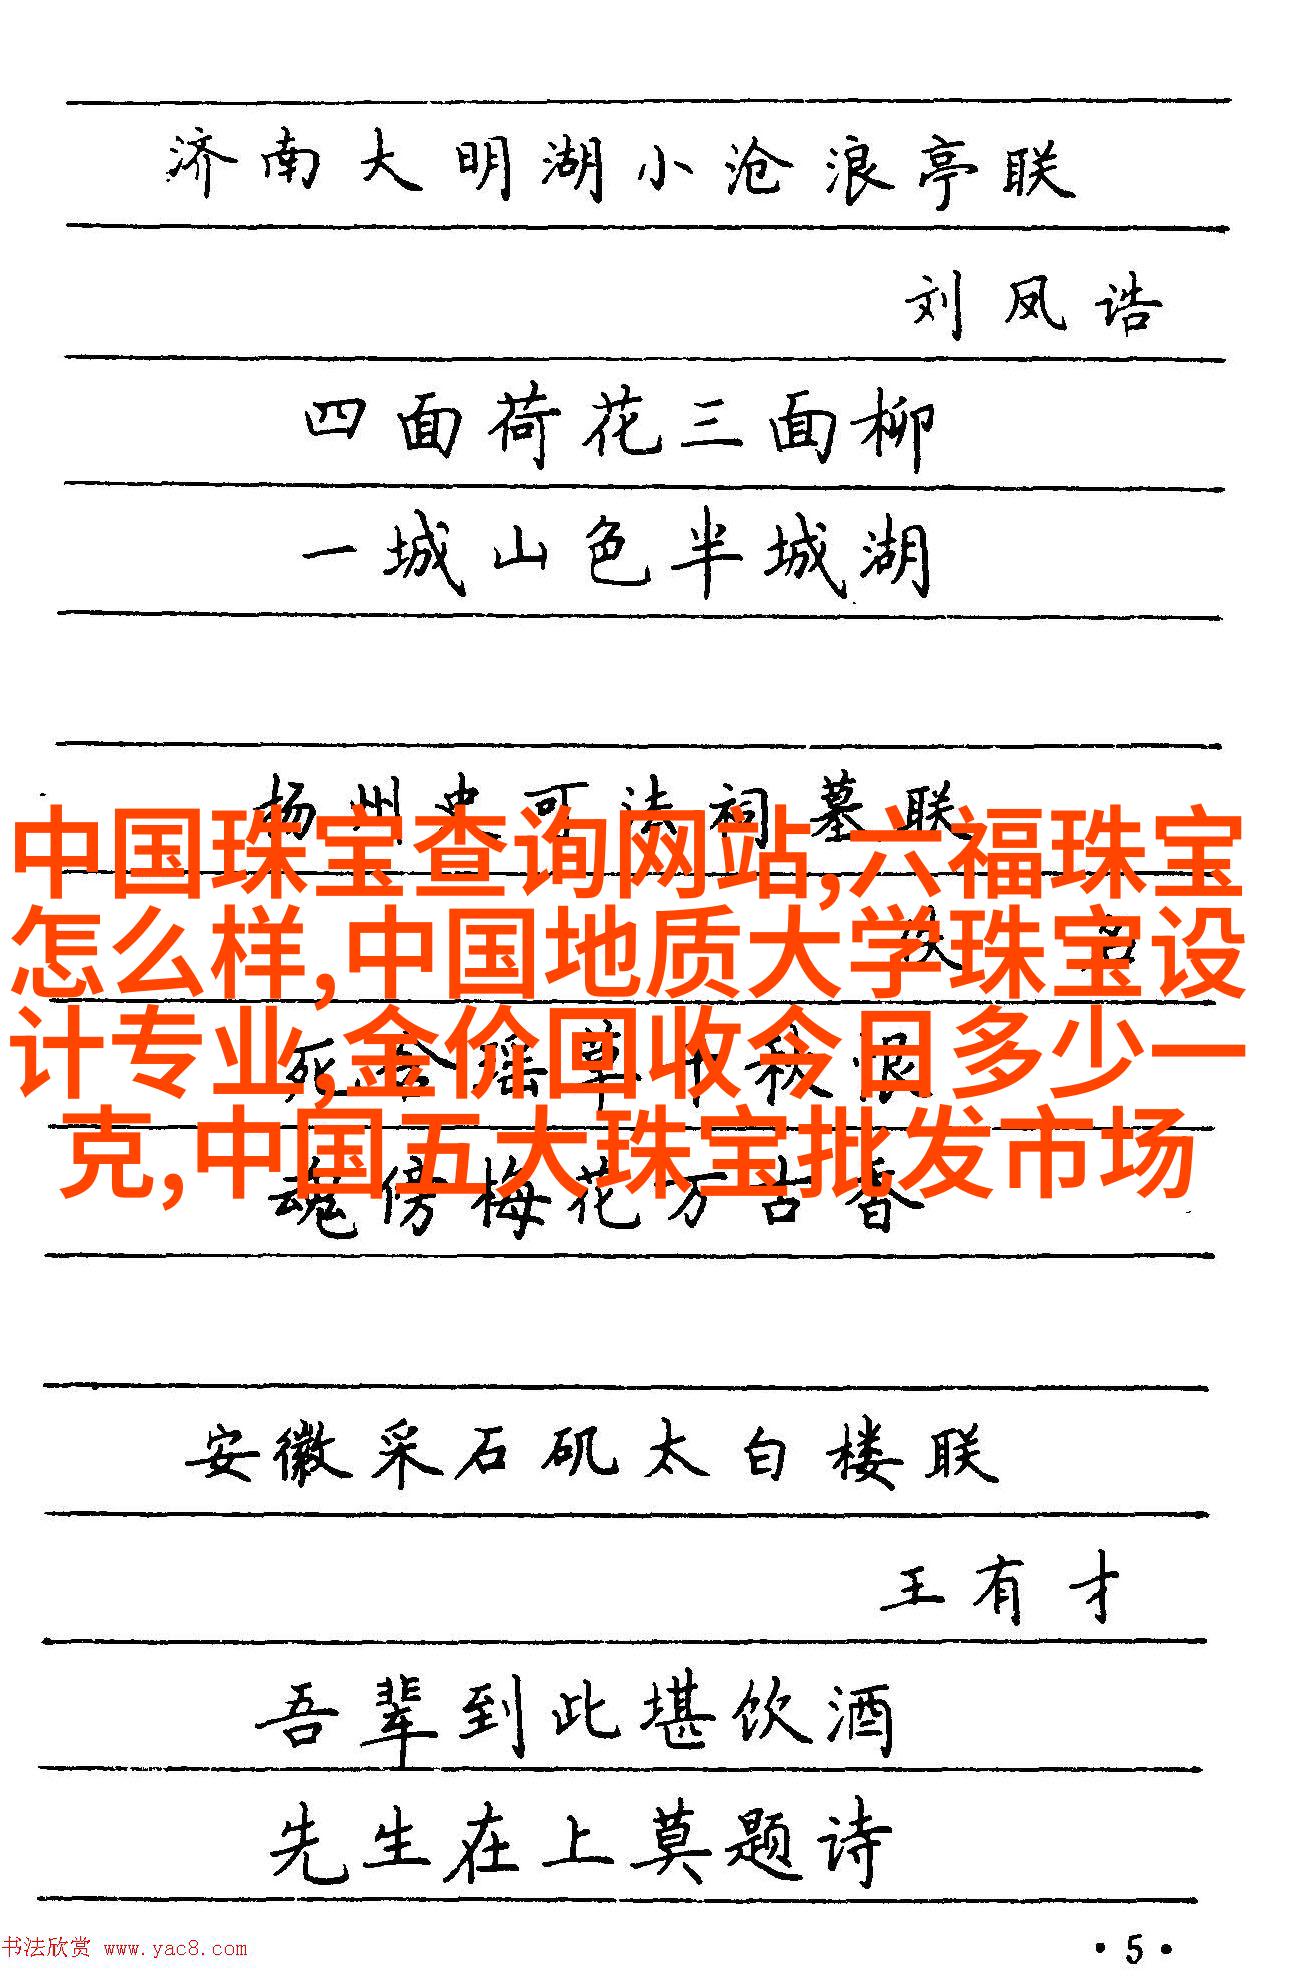 济南大明湖小沧浪亭联
刘凤诰
四面荷花三面柳
一城山色半城湖
扬州史可法祠墓联
中国珠宝查询网站,六福珠宝
怎么样,中国地质大学珠宝设
计专业,金价回收今日多少一
克,中国五大珠宝批发市场
魂傍梅花万古香
安徽采石矶太白楼联
王有才
吾辈到此堪饮酒
先生在上莫题诗
书法欣赏 www.yac8.com
·5·